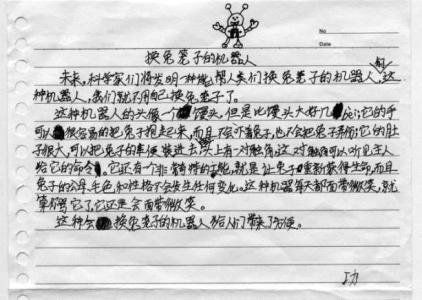 No
Date
换兔笼子的机器人
未来,科学家们将发明一种能帮人类们换兔笼子的机器人,有了这
种机器人,我们就不用自己换兔笼子了。
这种机器人的头像一个馒头,但是比馒头大好几倍;它的手
可以很容易的把兔子抱起来,而且不会伤害兔子,也不会把兔子弄伤;它的肚
子很大,可以把兔子的粪便装进去;头上有一对触角,这对触角可以听见主人
给它的命令。它还有一个非常特殊的功能,就是让兔子重新获得生命,而且
兔子的公母、毛色,和性格不会发生任何变化。这种机器人每天都面带微笑,就
算骂它了,它还是会面带微笑。
这种会换兔笼子的机器人给人们带来了方便。